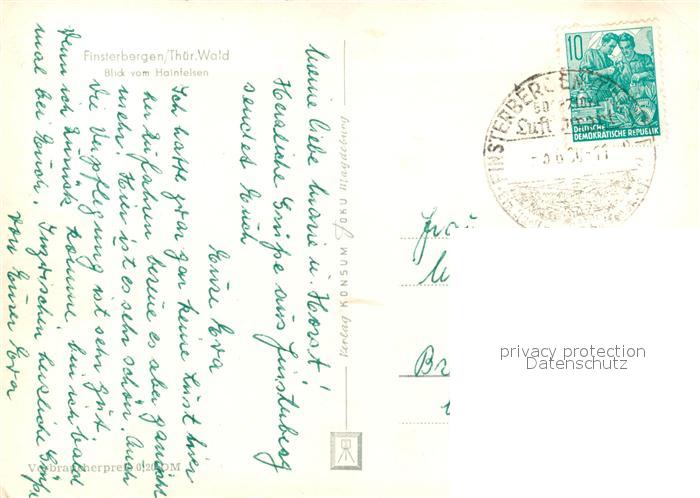 Finsterbergen/Thür.Wald
Blick vom Hainfelsen
Meine liebe Marie u. Horst!
Herzliche Grüße aus Finsterberg
sendet Euch
Eure Eva
Ich hatte zwar gar keine Lust hier
her zu fahren bereue es aber garnicht
mehr. Hier ist es sehr schön. Auch
die Verpflegung ist sehr gut
Wenn ich zurück komme bin ich bald
mal bei Euch. Inzwischen herzliche Grüße
von Eurer Eva
Verbraucherpreis 0,20 DM
Verlag KONSUM FOKU Magdeburg
10
DEUTSCHE
DEMOKRATISCHE REPUBLIK
FINSTERBERGEN
Luft
Frau
Br
privacy protection
Datenschutz